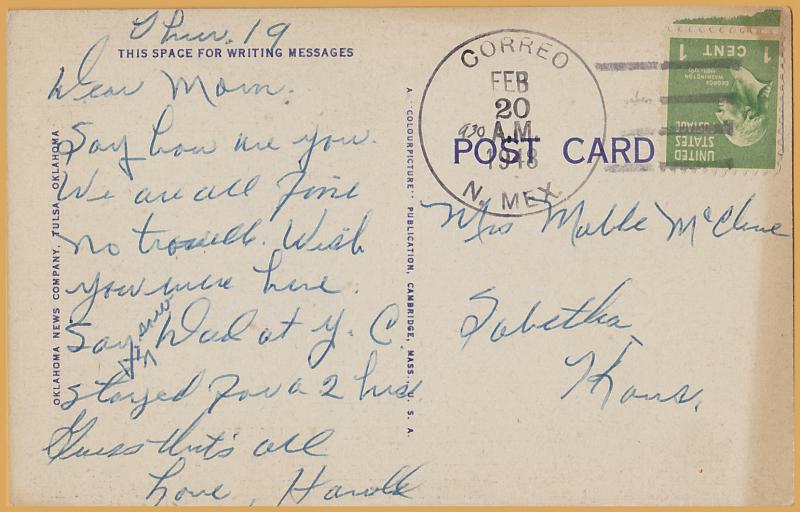 Thur. 19
THIS SPACE FOR WRITING MESSAGES
Dear Mom.
Say how are you.
We are all Fine
No trouelle. Wish
you were here.
Say I seen Dad at Y. C.
stayed For a 2 hrs.
Guess that's all
Love, Harold
OKLAHOMA NEWS COMPANY, TULSA, OKLAHOMA
A "COLOURPICTURE" PUBLICATION, CAMBRIDGE, MASS. U. S. A.
CORREO
FEB
20
930 A.M.
1948
N. MEX.
1 CENT 1
GEORGE WASHINGTON
UNITED
STATES
POSTAGE
POST CARD
Mrs Mable McClure
Sabetha
Kans.